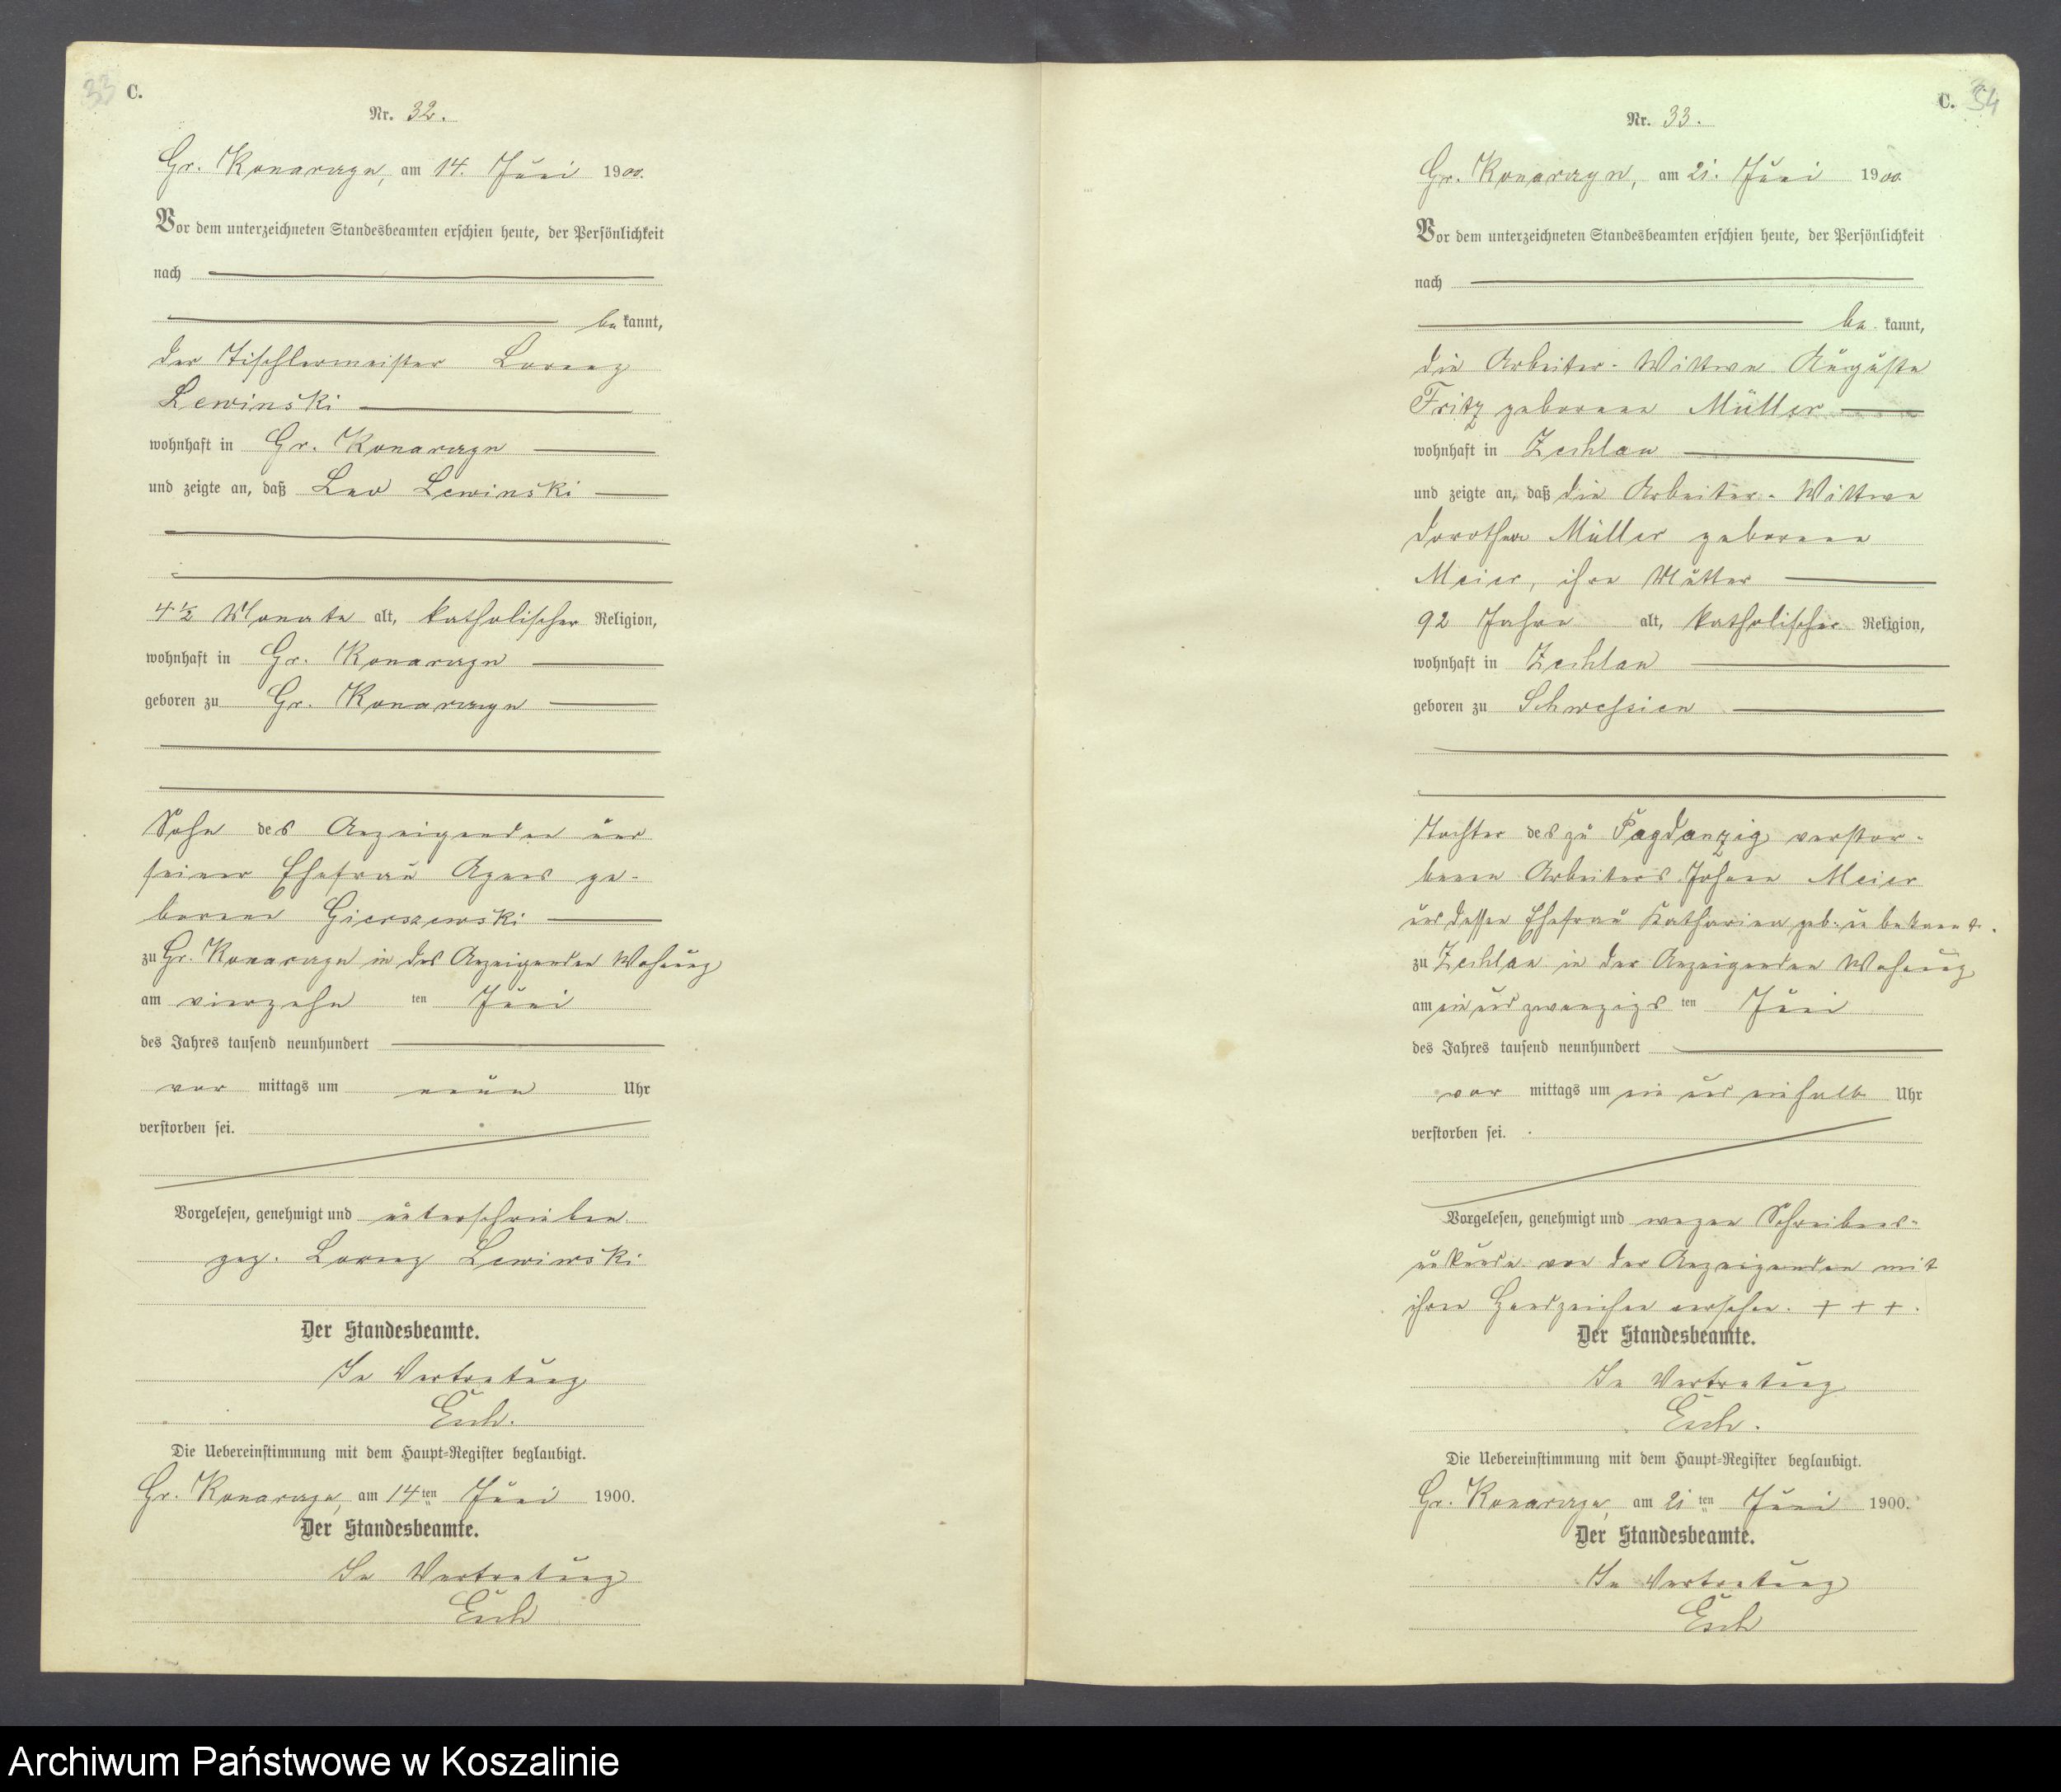 33 C.
Nr. 32.
Gr. Konarczyn, am 14. Juni 1900.
Vor dem unterzeichneten Standesbeamten erschien heute, der Persönlichkeit
nach
be kannt,
der Tischlermeister Lorenz
Lewinski
wohnhaft in Gr. Konarczyn
und zeigte an, daß Leo Lewinski
4 ½ Monate alt, katholischer Religion,
wohnhaft in Gr. Konarczyn
geboren zu Gr. Konarczyn
Sohn des Anzeigenden und
seiner Ehefrau Agnes ge-
borene Gierszewski
zu Gr. Konarczyn in des Anzeigenden Wohnung
am vierzehn ten Juni
des Jahres tausend neunhundert
vor mittags um neun Uhr
verstorben sei.
Vorgelesen, genehmigt und unterschrieben
gez. Lorenz Lewinski
Der Standesbeamte.
In Vertretung
Esch.
Die Uebereinstimmung mit dem Haupt-Register beglaubigt.
Gr. Konarczyn, am 14ten Juni 1900.
Der Standesbeamte.
In Vertretung
Esch
C. 34
Nr. 33.
Gr. Konarczyn, am 21. Juni 1900
Vor dem unterzeichneten Standesbeamten erschien heute, der Persönlichkeit
nach
be kannt,
die Arbeiter-Wittwe Auguste
Fritz geborene Müller
wohnhaft in Zechlau
und zeigte an, daß die Arbeiter-Wittwe
Dorothea Müller geborene
Meier, ihre Mutter
92 Jahre alt, katholischer Religion,
wohnhaft in Zechlau
geboren zu Schwessien
Tochter des zu Pagdanzig verstor-
benen Arbeiters Johann Meier
und dessen Ehefrau Katharina geb. unbekannt.
zu Zechlau in der Anzeigenden Wohnung
am ein und zwanzigs ten Juni
des Jahres tausend neunhundert
vor mittags um ein und einhalb Uhr
verstorben sei.
Vorgelesen, genehmigt und wegen Schreibens-
unkunde von der Anzeigenden mit
ihren Handzeichen versehen. + + +.
Der Standesbeamte.
In Vertretung
Esch.
Die Uebereinstimmung mit dem Haupt-Register beglaubigt.
Gr. Konarczyn, am 21 ten Juni 1900.
Der Standesbeamte.
In Vertretung
Esch
Archiwum Państwowe w Koszalinie